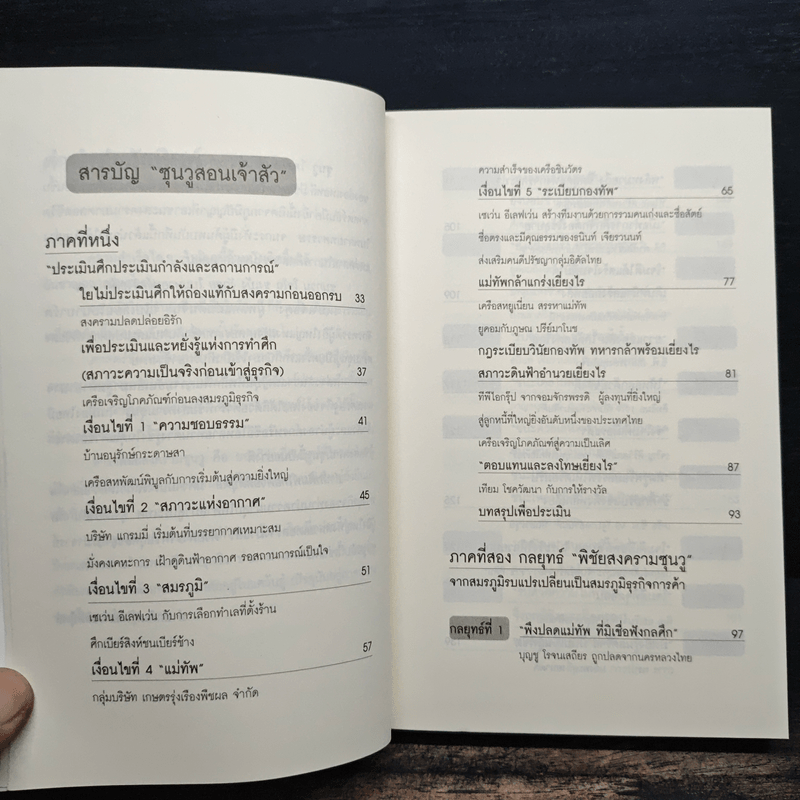 สารบัญ "ซุนวูสอนเจ้าสัว"
ภาคที่หนึ่ง
"ประเมินศึกประเมินกำลังและสถานการณ์"
ใยไม่ประเมินศึกให้ถ่องแท้กับสงครามก่อนออกรบ 33
สงครามปลดปล่อยอิรัก
เพื่อประเมินและหยั่งรู้แห่งการทำศึก
(สภาวะความเป็นจริงก่อนเข้าสู่ธุรกิจ) 37
เครือเจริญโภคภัณฑ์ก่อนลงสมรภูมิธุรกิจ
เงื่อนไขที่ 1 "ความชอบธรรม" 41
บ้านอนุรักษ์กระดาษสา
เครือสหพัฒน์พิบูลกับการเริ่มต้นสู่ความยิ่งใหญ่
เงื่อนไขที่ 2 "สภาวะแห่งอากาศ" 45
บริษัท แกรมมี่ เริ่มต้นที่บรรยากาศเหมาะสม
มั่งคงเคหะการ เฝ้าดูดินฟ้าอากาศ รอสถานการณ์เป็นใจ
เงื่อนไขที่ 3 "สมรภูมิ" 51
เซเว่น อีเลฟเว่น กับการเลือกทำเลที่ตั้งร้าน
ศึกเบียร์สิงห์ชนเบียร์ช้าง
เงื่อนไขที่ 4 "แม่ทัพ" 57
กลุ่มบริษัท เกษตรรุ่งเรืองพืชผล จำกัด
ความสำเร็จของเครือชินวัตร
เงื่อนไขที่ 5 "ระเบียบกองทัพ" 65
เซเว่น อีเลฟเว่น สร้างทีมงานด้วยการรวมคนเก่งและซื่อสัตย์
ซื่อตรงและมีคุณธรรมของธนินท์ เจียรวนนท์
ส่งเสริมคนดีปรัชญากลุ่มอิตัลไทย
แม่ทัพกล้าแกร่งเยี่ยงไร 77
เครือสหยูเนี่ยน สรรหาแม่ทัพ
ยูคอมกับภูษณ ปรีย์มาโนช
กฎระเบียบวินัยกองทัพ ทหารกล้าพร้อมเยี่ยงไร
สภาวะดินฟ้าอำนวยเยี่ยงไร 81
ทีพีไอกรุ๊ป จากจอมจักรพรรดิ ผู้ลงทุนที่ยิ่งใหญ่
สู่ลูกหนี้ที่ใหญ่ยิ่งอันดับหนึ่งของประเทศไทย
เครือเจริญโภคภัณฑ์สู่ความเป็นเลิศ
"ตอบแทนและลงโทษเยี่ยงไร" 87
เทียม โชควัฒนา กับการให้รางวัล
บทสรุปเพื่อประเมิน 93
ภาคที่สอง กลยุทธ์ "พิชัยสงครามซุนวู"
จากสมรภูมิรบแปรเปลี่ยนเป็นสมรภูมิธุรกิจการค้า
กลยุทธ์ที่ 1 "พึงปลดแม่ทัพ ที่มิเชื่อฟังกลศึก" 97
บุญชู โรจนเสถียร ถูกปลดจากนครหลวงไทย